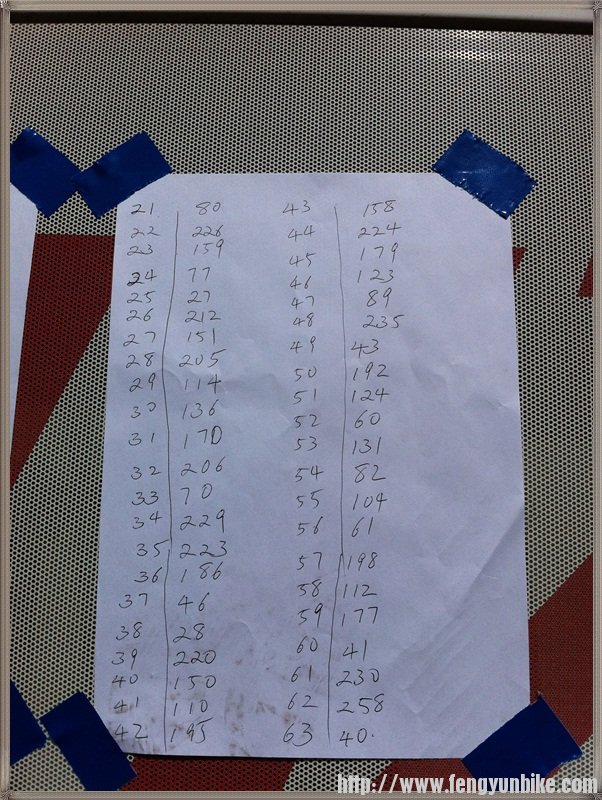 21 80
22 226
23 159
24 77
25 27
26 212
27 151
28 205
29 114
30 136
31 170
32 206
33 70
34 229
35 223
36 186
37 46
38 28
39 220
40 150
41 110
42 195
43 158
44 224
45 179
46 123
47 89
48 235
49 43
50 192
51 124
52 60
53 131
54 82
55 104
56 61
57 198
58 112
59 177
60 41
61 230
62 258
63 40.
http://www.fengyunbike.com